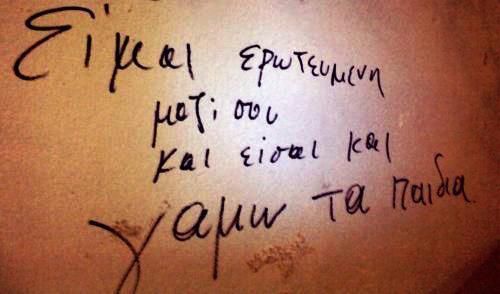 Είμαι ερωτευμενη
μαζί σου
και είσαι και
γαμω τα παιδια